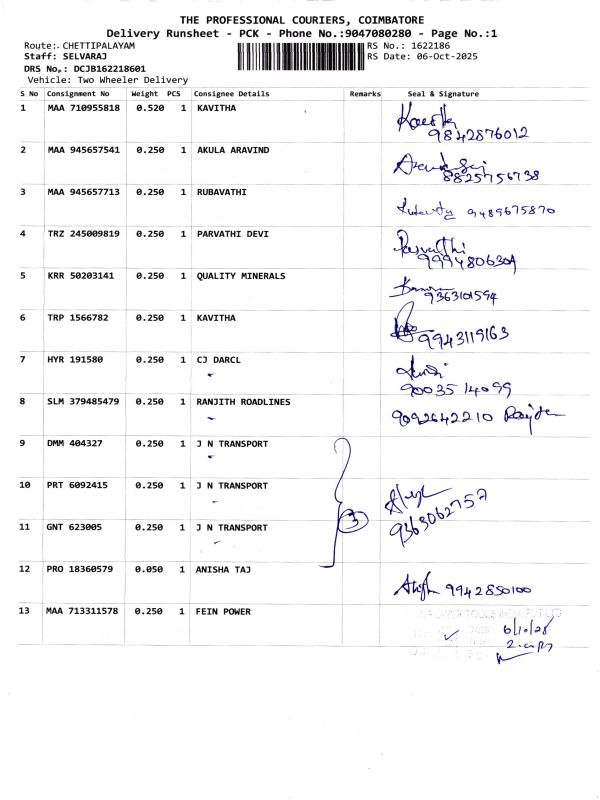 THE PROFESSIONAL COURIERS, COIMBATORE
Delivery Runsheet - PCK - Phone No.:9047080280 - Page No.:1
Route: CHETTIPALAYAM RS No.: 1622186
Staff: SELVARAJ RS Date: 06-Oct-2025
DRS No,: DCJB162218601
Vehicle: Two Wheeler Delivery
S No Consignment No Weight PCS Consignee Details Remarks Seal & Signature
1 MAA 710955818 0.520 1 KAVITHA
9842876012
2 MAA 945657541 0.250 1 AKULA ARAVIND
8825756738
3 MAA 945657713 0.250 1 RUBAVATHI
9489675870
4 TRZ 245009819 0.250 1 PARVATHI DEVI
Parvathi
9994806304
5 KRR 50203141 0.250 1 QUALITY MINERALS
9363101594
6 TRP 1566782 0.250 1 KAVITHA
9943119163
7 HYR 191580 0.250 1 CJ DARCL
9003514099
8 SLM 379485479 0.250 1 RANJITH ROADLINES
9092642210
9 DMM 404327 0.250 1 J N TRANSPORT
10 PRT 6092415 0.250 1 J N TRANSPORT
11 GNT 623005 0.250 1 J N TRANSPORT
3
9363062757
12 PRO 18360579 0.050 1 ANISHA TAJ
9942850100
13 MAA 713311578 0.250 1 FEIN POWER
2.copy